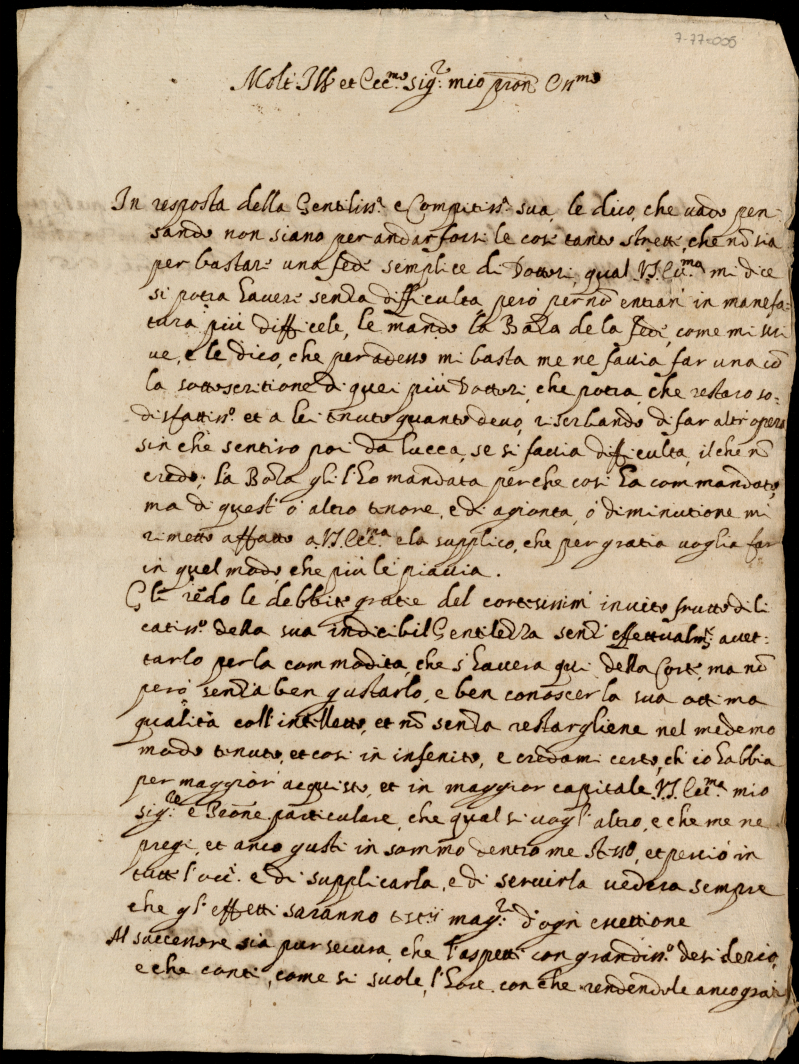 7-77-006
Molt' Ill.e et Ecc.mo Sig.r mio pron Oss.mo
In resposta della Gentiliss.a e Compitiss.a sua, le dico, che vado pen
sando non siano per andar forsi le cose tanto strette, che nõ sia
per bastare una fede semplice di Dottori, qual V.S. Ecc.ma mi dice
si potrà havere senza difficultà però per nõ entrare in manefa-
tura più difficele, le mando la Boza de la fede, come mi scri
ve, e le dico, che per adesso mi basta me ne facia far una cõ
la sottoscritione di quei più Dottori, che potrà, che restarò so-
disfattiss.o et a lei tenuto quanto devo, riserbando di far altr'opera
sin che sentirò poi da Lucca, se si facia difficultà, il che nõ
credo; la Boza gli l'ho mandata perche così ha commandato,
ma di quest' ò altro tenore, e di agionta, ò diminutione mi
rimetto affatto a V.S. Ecc.ma e la supplico, che per gratia voglia far
in quel modo, che più le piacia.
Gli redo le debbite gratie del cortesissimo invito frutto deli
catiss.o della sua indicibil Gentilezza senz' effettualm.te accet-
tarlo per la commodità, che s'haverà qui della Corte, ma nõ
però senza ben gustarlo, e ben conoscer la sua ottima
qualità coll' intelletto, et nõ senza restargliene nel medemo
modo tenuto, et così in infenito, e credami certo, ch' io habbia
per maggior acquisto, et in maggior capitale V.S. Ecc.ma mio
Sig.re e Prone particulare, che qual si vogl' altro, e che me ne
pregi, et anco gusti in sommo dentro me stesso, et perciò in
tutte l'occ.i e di supplicarla, e di servirla vederà sempre
che gl' effetti saranno mag.r d'ogni
Al successore sia pur secura, che l'aspetti con grandiss.o desiderio,
e che conti, come si suole, l'hore, con che rendendole anco gratie